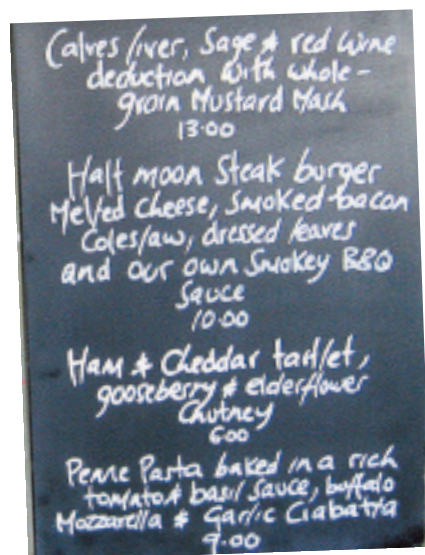 Calves liver, Sage & red wine
deduction with whole-
grain Mustard Mash
13.00
Half moon Steak burger
Melted Cheese, Smoked bacon
Coleslaw, dressed leaves
and our own Smokey BBQ
Sauce
10.00
Ham & Cheddar tartlet,
gooseberry & elderflower
Chutney
6.00
Penne Pasta baked in a rich
tomato & basil Sauce, buffalo
Mozzarella & Garlic Ciabatta
9.00